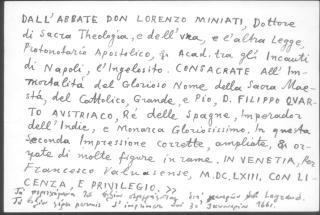 DALL'ABBATE DON LORENZO MINIATI, Dottore
di Sacra Theologia, e dell'una, e l'altra Legge,
Protonotario Apostolico, fi Acad. tra gli Incauti
di Napoli, l'Ingelosito. CONSACRATE All'Im-
mortalità del Glorioso Nome della Sacra Mae-
stà, del Cattolico, Grande, e Pio, D. FILIPPO QUAR-
TO AVSTRIACO, Ré delle Spagne, Imperador
dell'Indie, e Monarca Gloriosissimo. In questa
seconda Impressione corrette, ampliate, & or-
nate di molte figure in rame. IN VENETIA, Per
Francesco Valuasense, M.DC.LXIII, CON LI-
CENZA, E PRIVILEGIO. >>
Legrand.
1661.